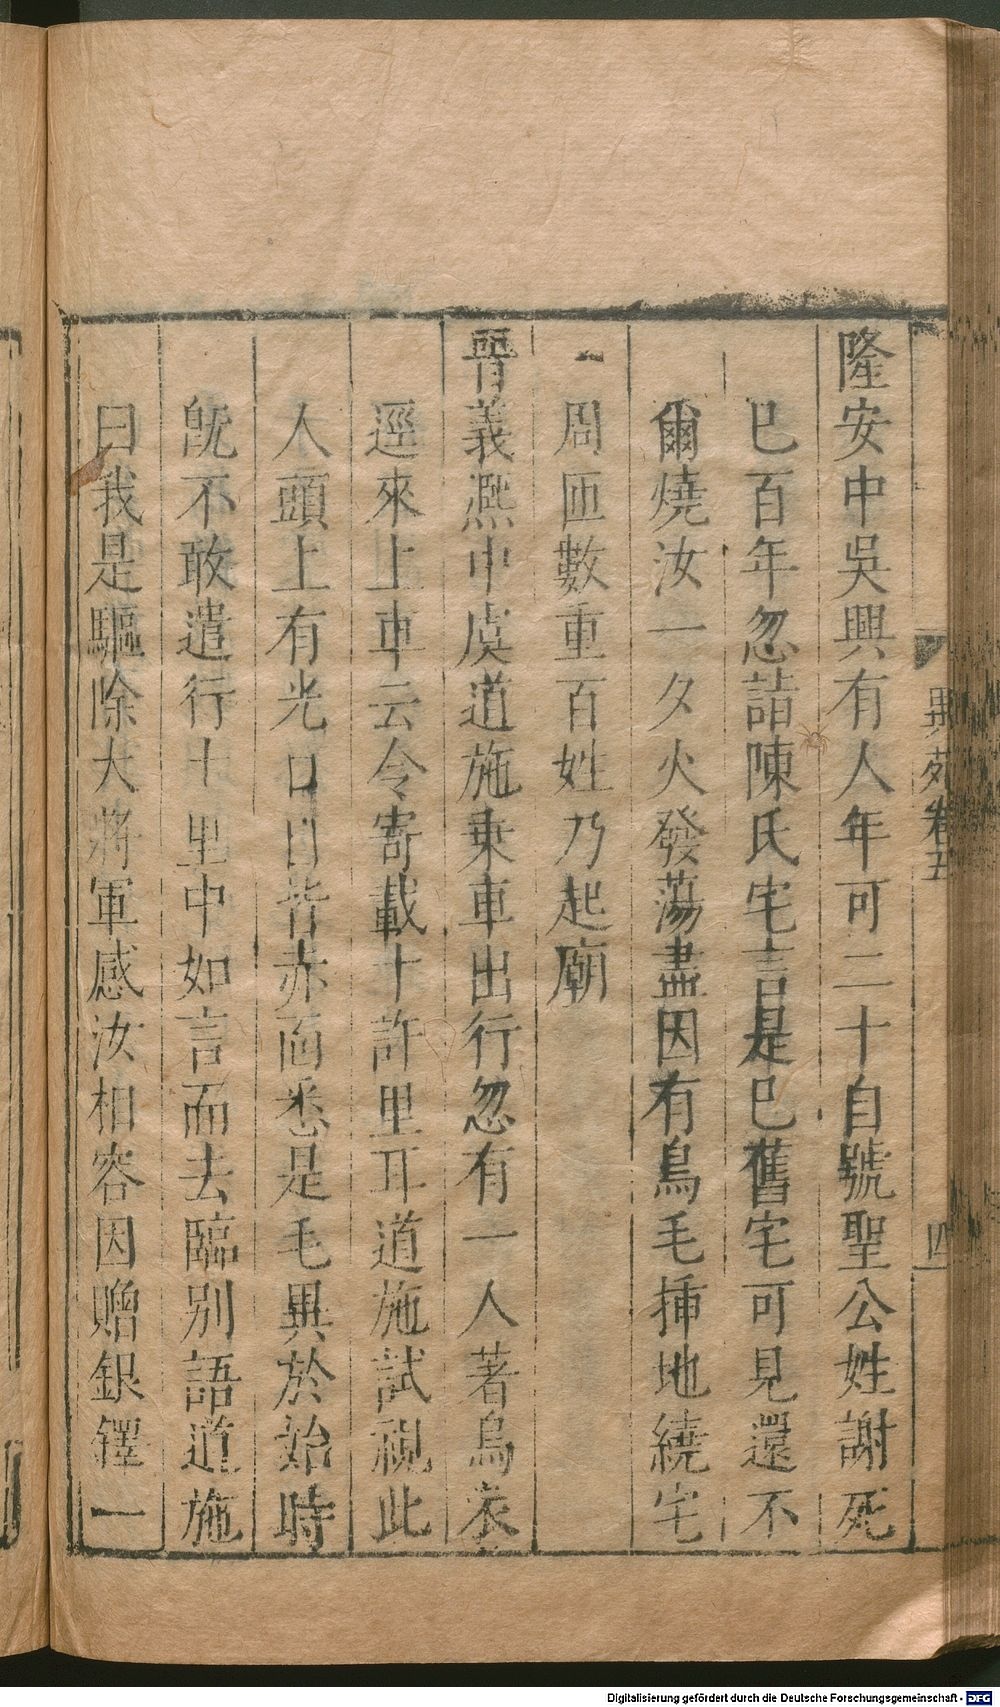 異苑卷五
四
隆安中吳興有人年可二十自號聖公姓謝死
已百年忽詣陳氏宅言是已舊宅可見還不
爾燒汝一夕火發蕩盡因有鳥毛揷地繞宅
周匝數重百姓乃起廟
晉義熈中虞道施乗車出行忽有一人著烏衣
逕來上車云令寄載十許里耳道施試視此
人頭上有光口目皆赤面悉是毛異於始時
旣不敢遣行十里中如言而去臨別語道施
曰我是驅除大將軍感汝相容因贈銀鐸一
Digitalisierung gefördert durch die Deutsche Forschungsgemeinschaft - DFG